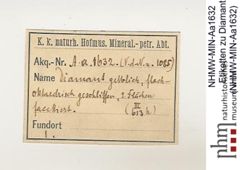 K. k. naturh. Hofmus. Mineral.-petr. Abt.
Akq.-Nr. A.a.1632. (N.d.No. 1085)
Name Diamant gelblich, flach-
oktaedrisch geschliffen, 2 Flächen
facettiert.
Fundort
NHMW-MIN-Aa1632
Etiketten zu Diamant
(NHMW-MIN-Aa1632)
naturhistorisches
museum
nhm